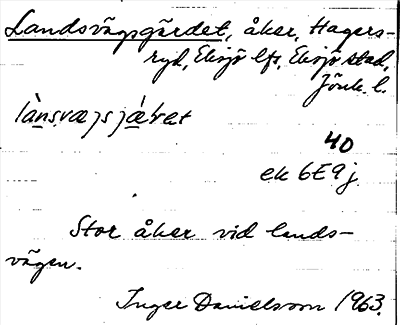 Landsvägsgärdet, åker, Hagers-
ryd, Eksjö lfs, Eksjö stad,
Jönk. l.
lànsvægsjæ̀ret
40
ek 6E9j
Stor åker vid lands-
vägen.
Inger Danielsson 1963.